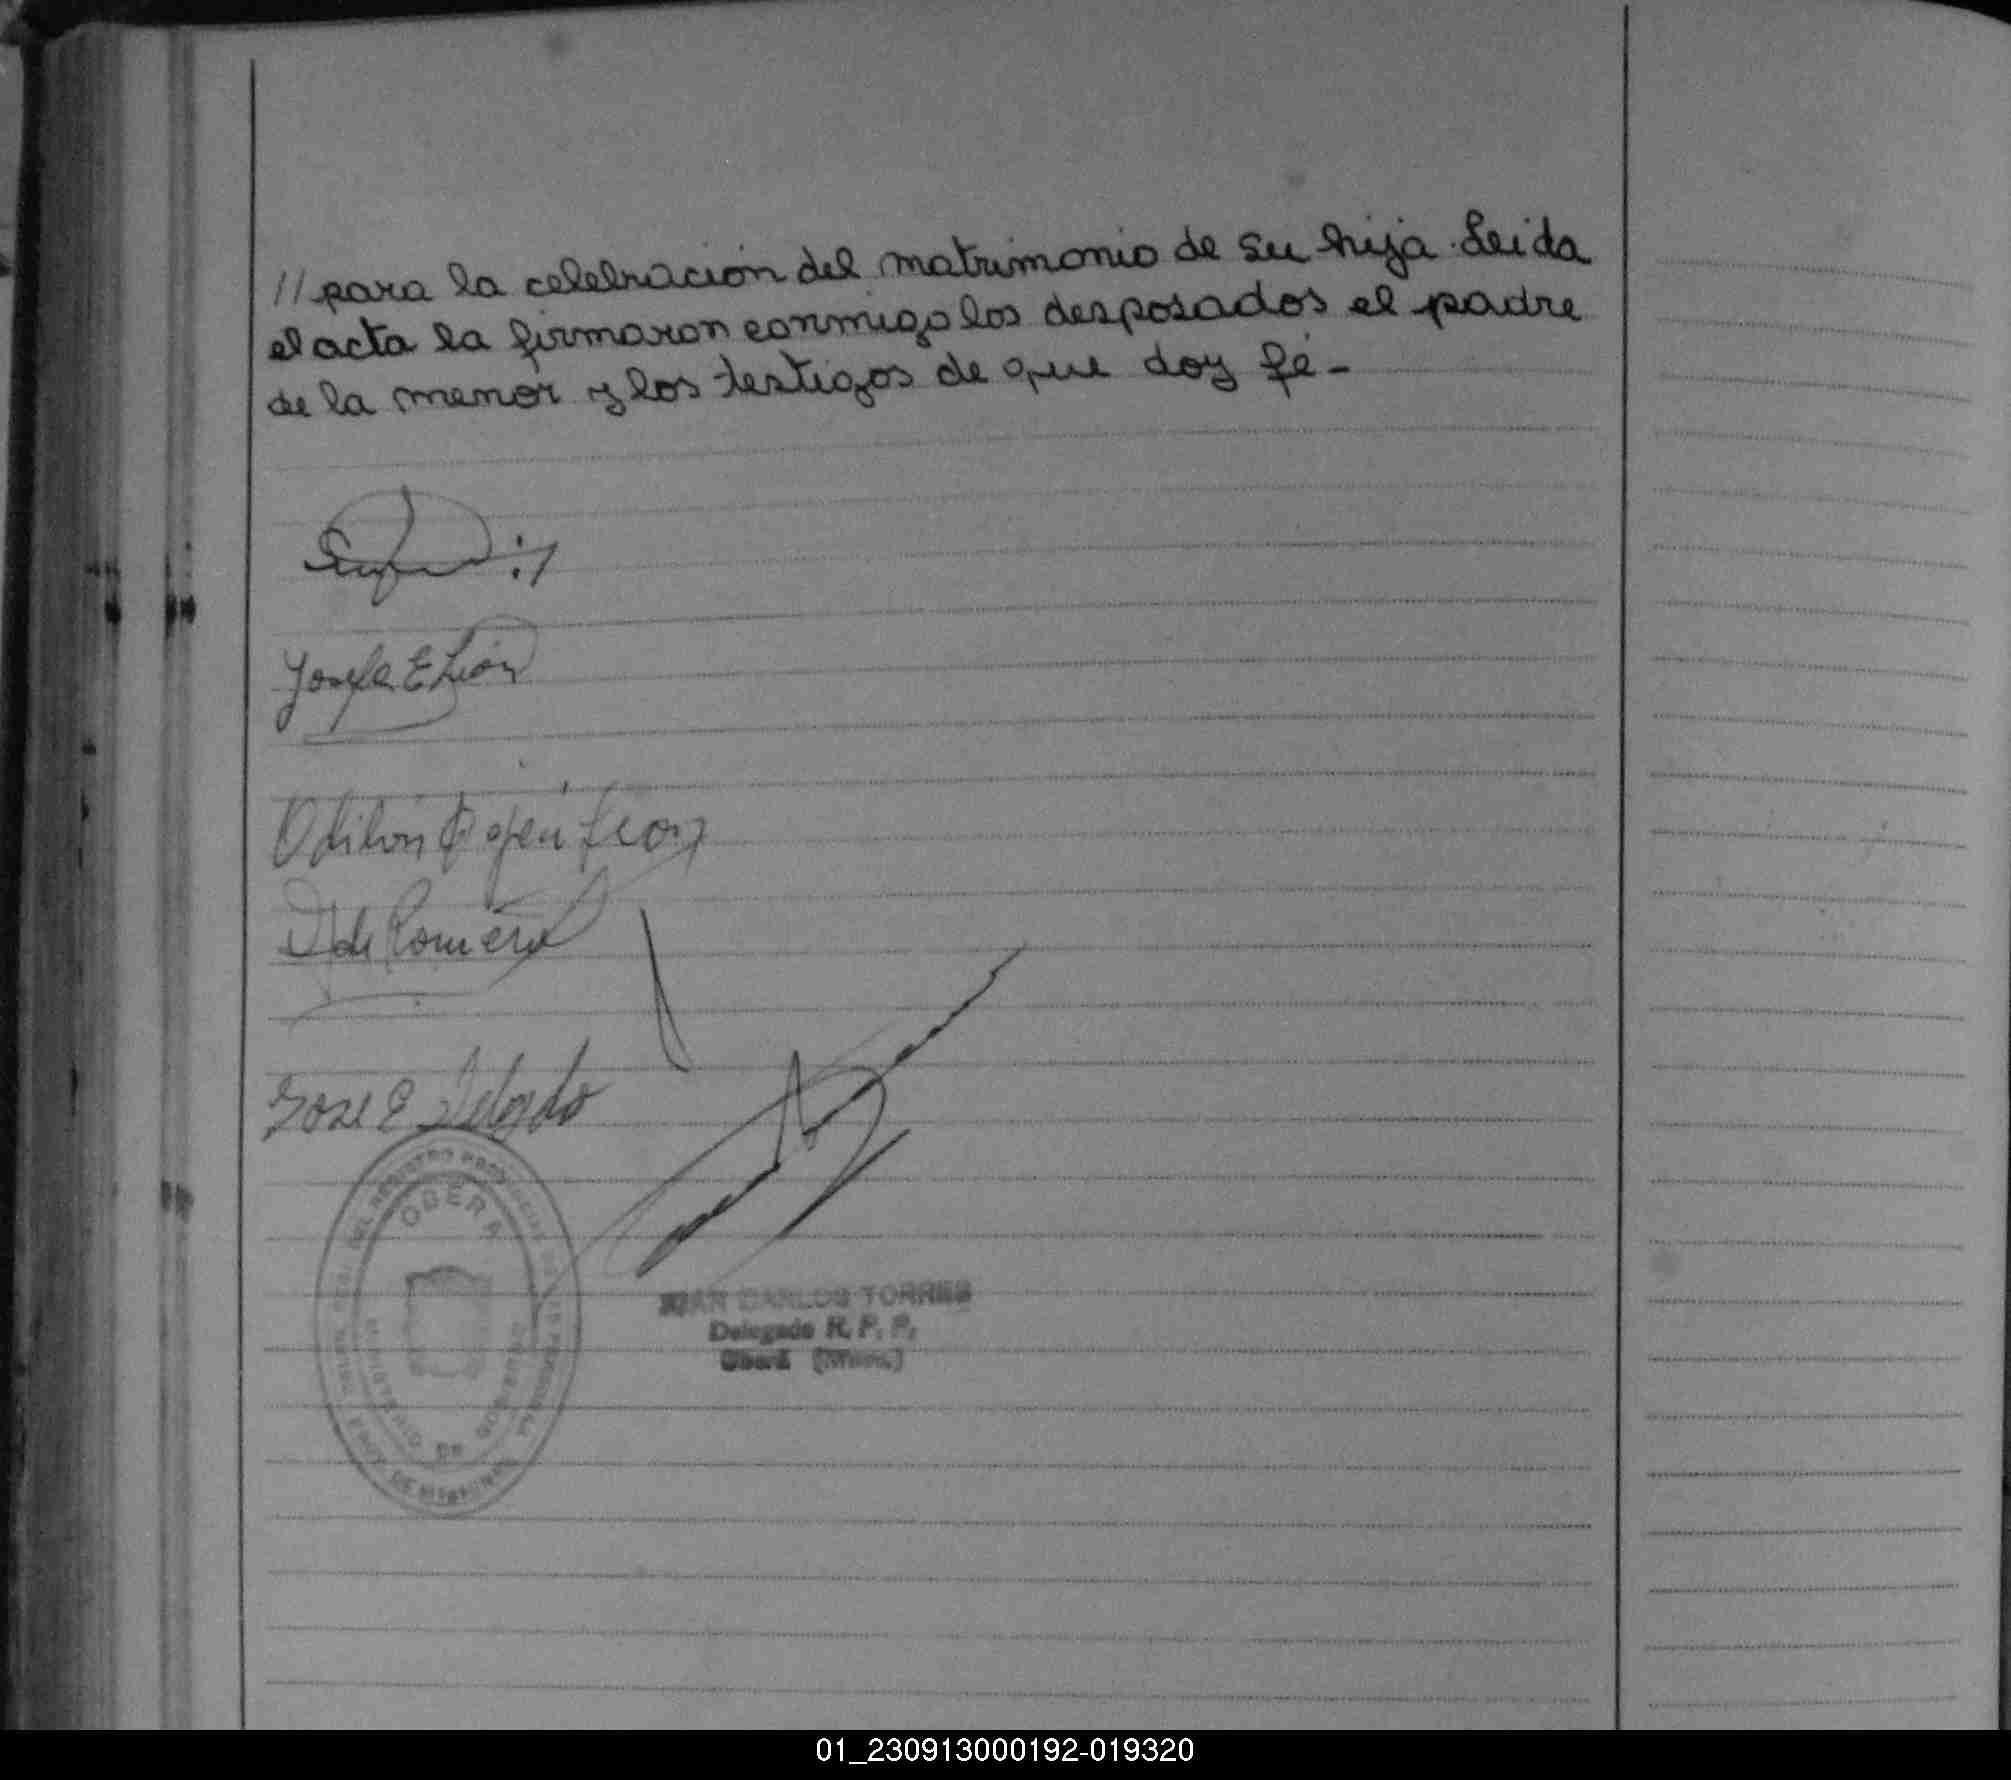 // para la celebración del matrimonio de su hija. Leida
el acta la firmaron conmigo los desposados el padre
de la menor y los testigos de que doy fé-
Josefa E León
Odilón León
de Romero
Jose E Delgado
OBERA
MINISTERIO DE GOBIERNO
DE MISIONES
JUAN CARLOS TORRES
Delegado R. P. P.
Oberá (Mnes.)
01_230913000192-019320